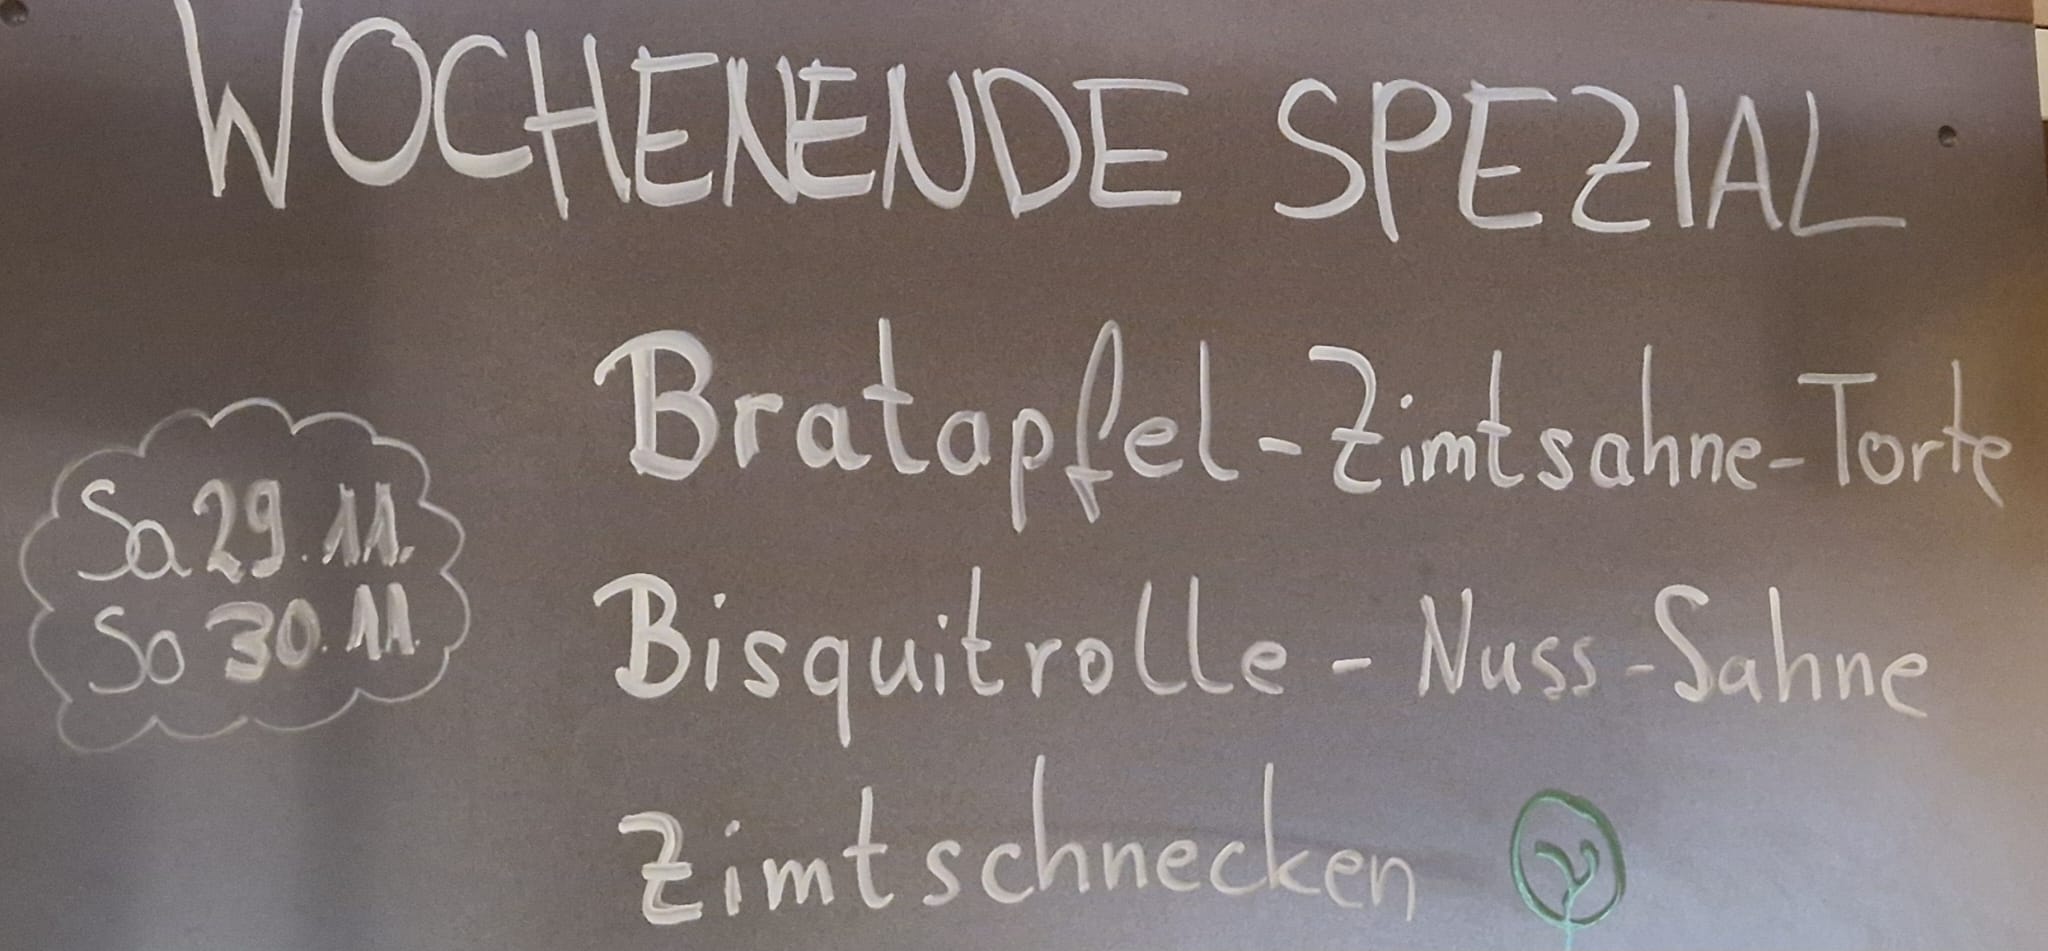 WOCHENENDE SPEZIAL
Sa 29.11.
So 30.11.
Bratapfel-Zimtsahne-Torte
Bisquitrolle - Nuss-Sahne
Zimtschnecken